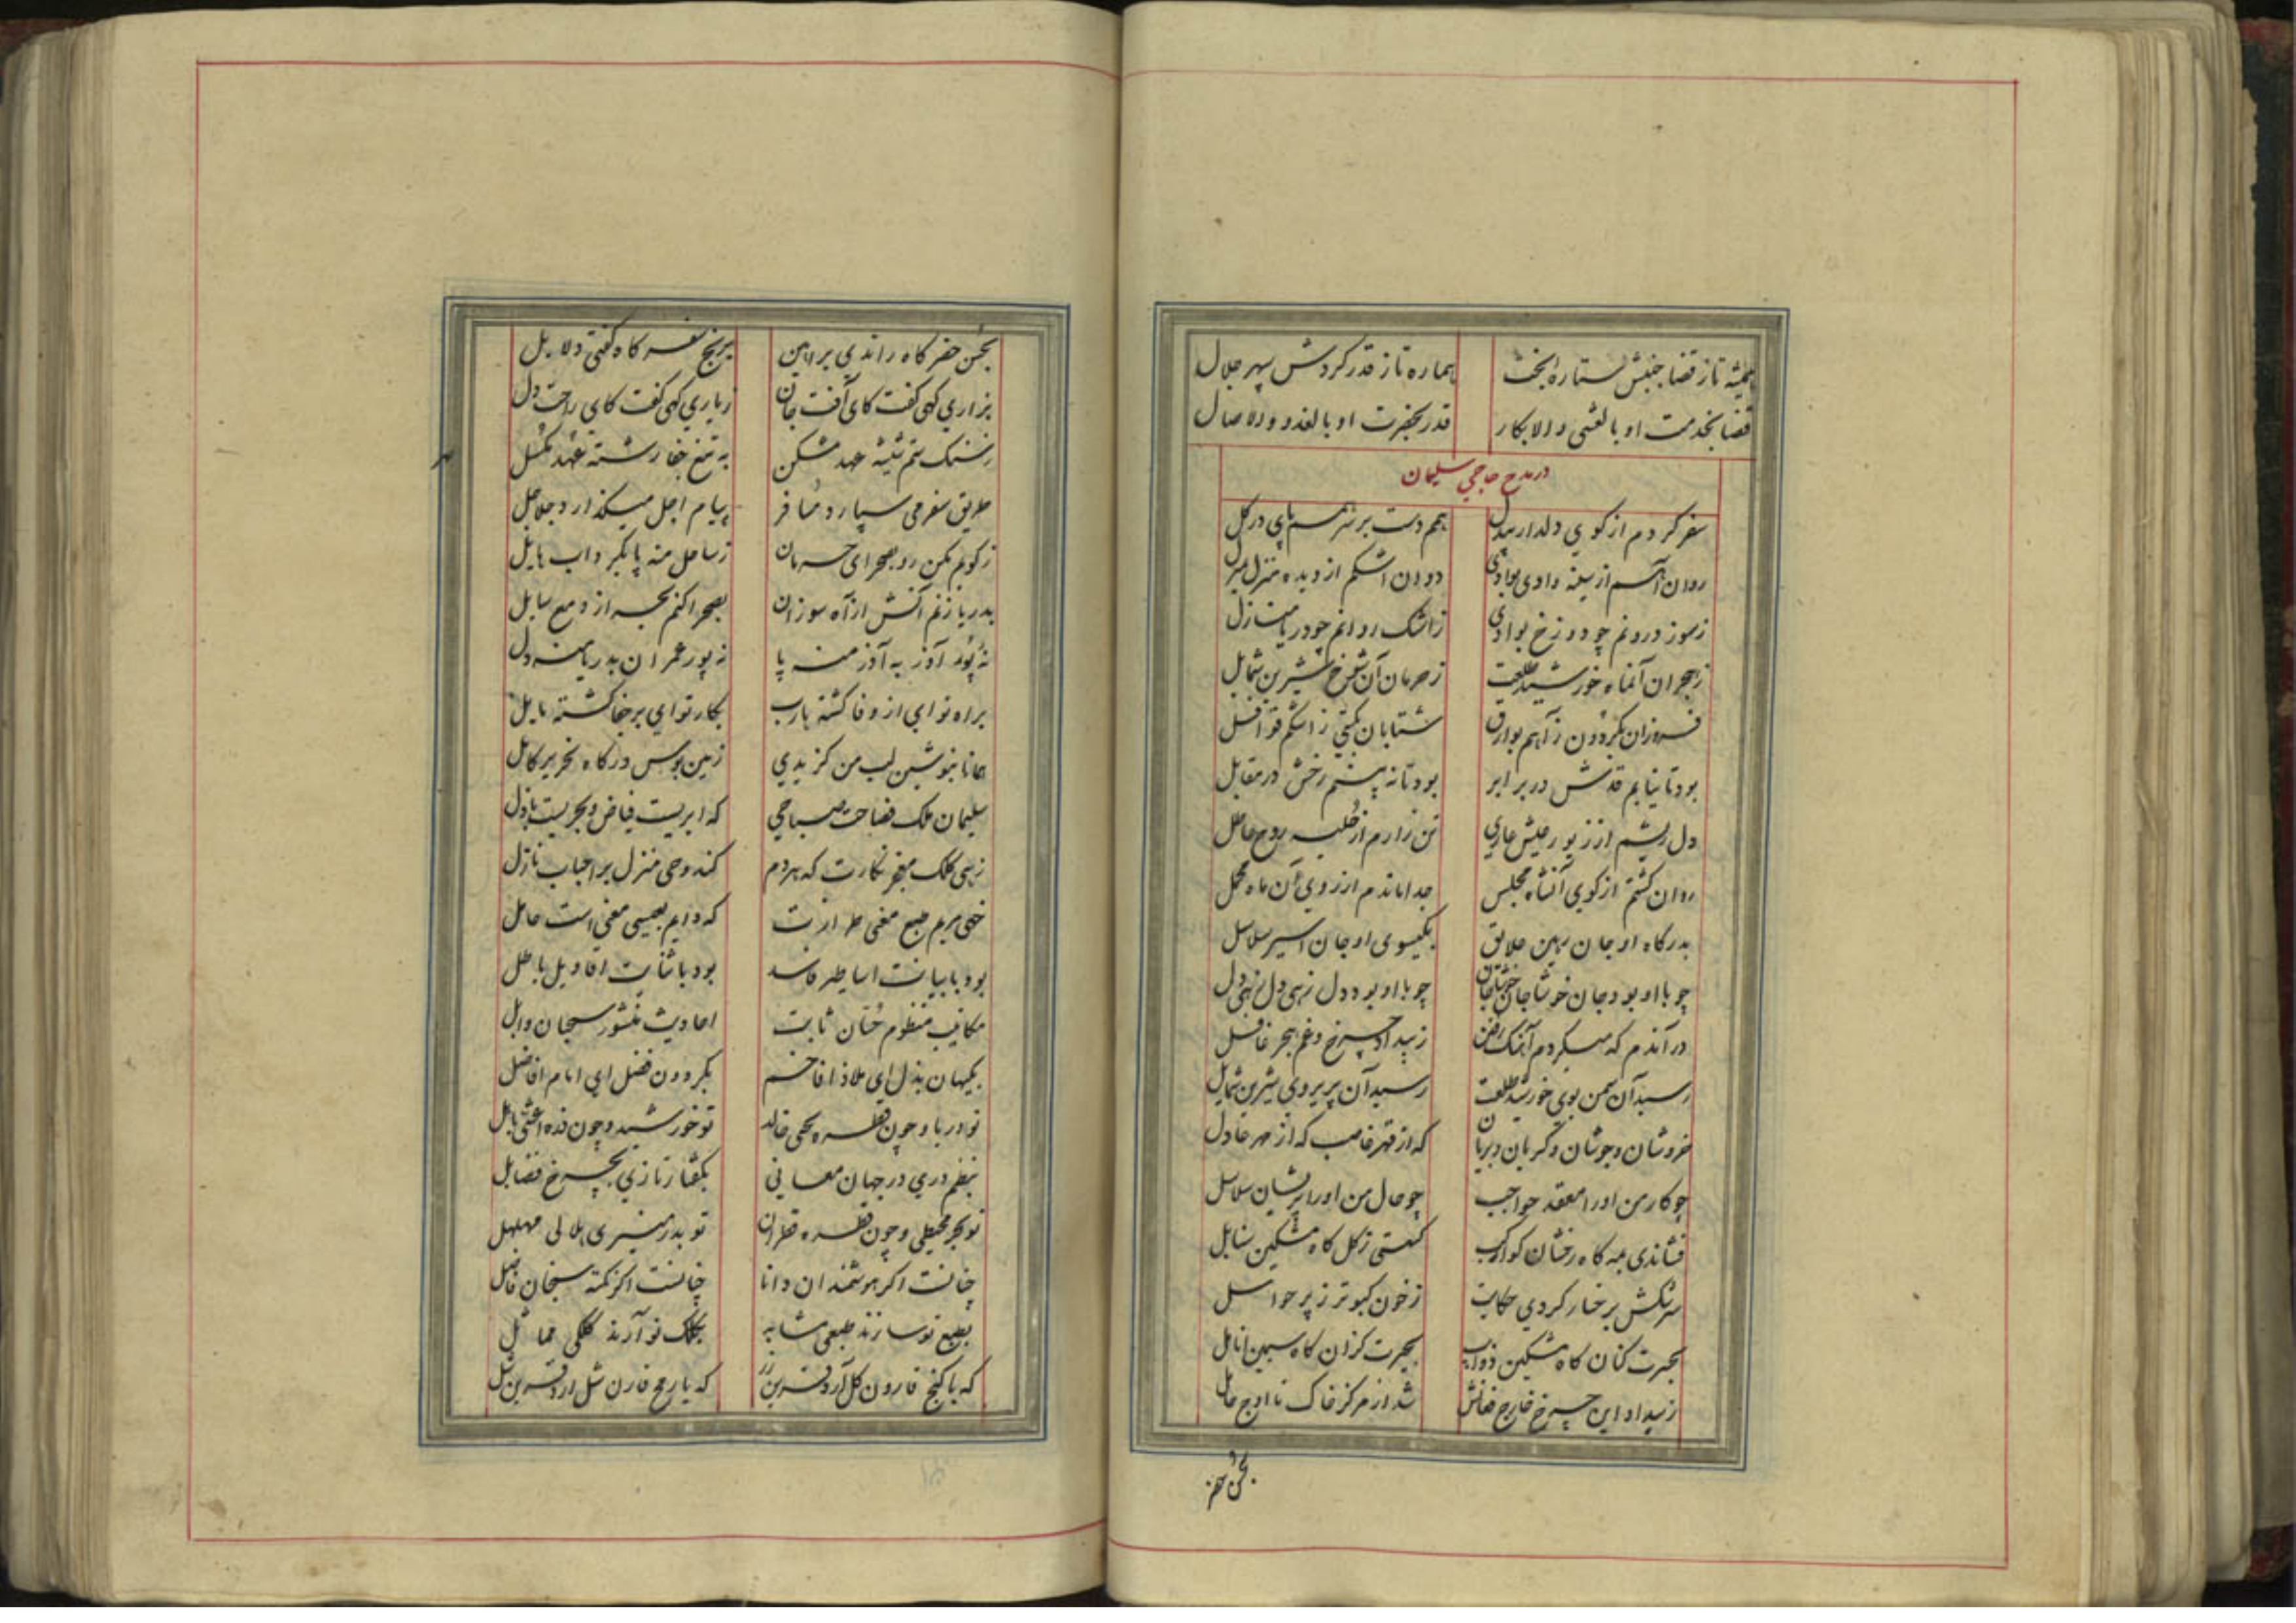 همیشه تا ز قضا جنبش ستاره بخت    هماره تا ز قدر گردش سپهر جلال
قضا بخدمت او بالعشی والابکار    قدر بحضرت او بالغدو والاصال
در مدح حاجی سلیمان
سفر کردم از کوی دلدار    هم دست بر سر هم پای در گل
روان آهم از سینه وادی بوادی    دوان اشکم از دیده منزل بمنزل
ز سوز درونم چو دوزخ بوادی    ز اشک روانم چو دریا منازل
ز هجران آنماه خورشید طلعت    ز حرمان آن شوخ شیرین شمایل
فروزان بگردون ز آهم بوارق    شتابان بگیتی ز اشکم قوافل
بود تا نیابم قدش در برابر    بود تا نه بینم رخش در مقابل
دل ریشم از زیور عیش عاری    تن زارم از حلیه روح عاطل
روان گشتم از کوی آنشاه مجلس    جدا ماندم از روی آن ماه محمل
بدرگاه او جان رهین علایق    بگیسوی او جان اسیر سلاسل
چو با او بود جان خوشا جان خوشا جان    چو با او بود دل زهی دل زهی دل
در آندم که میکردم آهنگ رفتن    ز بیداد چرخ و غم هجر غافل
رسید آن سمن بوی خورشید طلعت    رسید آن پریروی شیرین شمایل
خروشان و جوشان و گریان و بریان    که از قهر غاصب که از مهر عادل
چو کار من او را معقد حواجب    چو حال من او را پریشان سلاسل
فشاندی بمه گاه رخشان کواکب    گسستی ز گل گاه مشکین سنابل
سرشکش بر خسار کردی حکایت    ز خون کبوتر ز پر حواصل
بحسرت کنان گاه مشکین ذوایب    بحیرت گزان گاه سیمین انامل
ز بیداد این چرخ خارج فغانش    شد از مرکز خاک تا اوج حامل
بحسن حضر
بحسن حضر گاه راندی براهین    برنج سفر گاه گفتی دلایل
بزاری گهی گفت کای آفت جان    ز یاری گهی گفت کای راحت دل
ز سنگ ستم شیشه عهد مشکن    به تیغ جفا رشته عهد مگسل
طریق سفر می سپارد مسافر    پیام اجل میگذارد جلاجل
ز کویم مکن رو بصحرای حرمان    ز ساحل منه پا بگرداب هایل
بدریا زنم آتش از آه سوزان    بصحرا کنم بحر از دمع سایل
نه پور آذر به آذر منه پا    نه پور عمران بدریا منه دل
براه تو ای از وفا گشته هارب    بکار تو ای بر جفا گشته مایل
همانا بنوشین لب من گزیدی    زمین بوس درگاه نحریر کامل
سلیمان ملک فصاحت صباحی    که ابریست فیاض و بحریست باذل
زهی کلک معجز نگارت که هردم    کند وحی منزل بر احباب نازل
خهی مریم طبع معنی طرازت    که دایم بعیسی معنی است حامل
بود با بیانت اساطیر فاسد    بود با ثنایت اقاویل باطل
مکاتیب منظوم حسان ثابت    احادیث منثور سحبان وایل
بکیهان بذل ای ملاذ افاخم    بگردون فضل ای امام افاضل
تو دریا و چون قطره یحیی خالد    تو خورشید و چون ذره اعشی باهل
بنظم دری در جهان معانی    بگفتار تازی بچرخ فضایل
تو بحر محیطی و چون قطره قطران    تو بدر منیری هلالی مهلهل
چنانست اگر هوشمندان دانا    چنانست اگر نکته سنجان فاضل
بطبع تو سازند طبعی مشابه    بکلک تو آرند کلکی مماثل
که با گنج قارون    که با رمح قارن